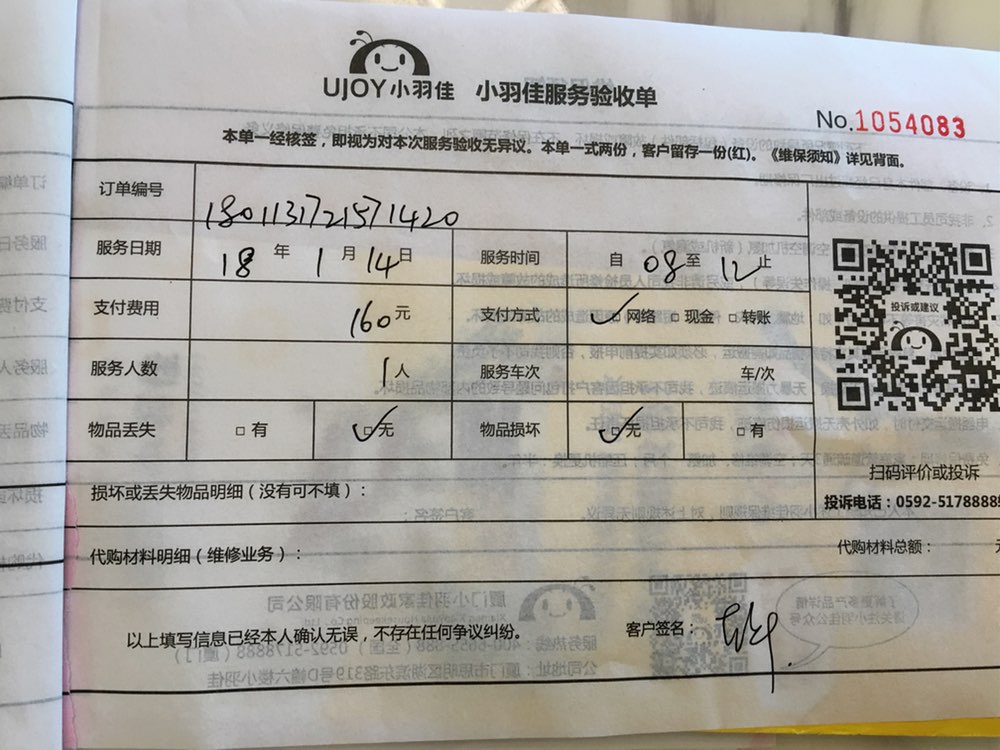 UJOY小羽佳 小羽佳服务验收单
No.1054083
本单一经核签，即视为对本次服务验收无异议。本单一式两份，客户留存一份(红)。《维保须知》详见背面。
订单编号 1801131721571420
服务日期 18 年 1 月 14 日 服务时间 自 08 至 12 止
支付费用 160 元 支付方式 ✓网络 □ 现金 □ 转账
服务人数 1 人 服务车次 车/次
物品丢失 □ 有 ✓无 物品损坏 ✓无 □ 有
投诉或建议
扫码评价或投诉
损坏或丢失物品明细（没有可不填）：
投诉电话：0592-5178888
代购材料明细（维修业务）：
代购材料总额：
以上填写信息已经本人确认无误，不存在任何争议纠纷。 客户签名：